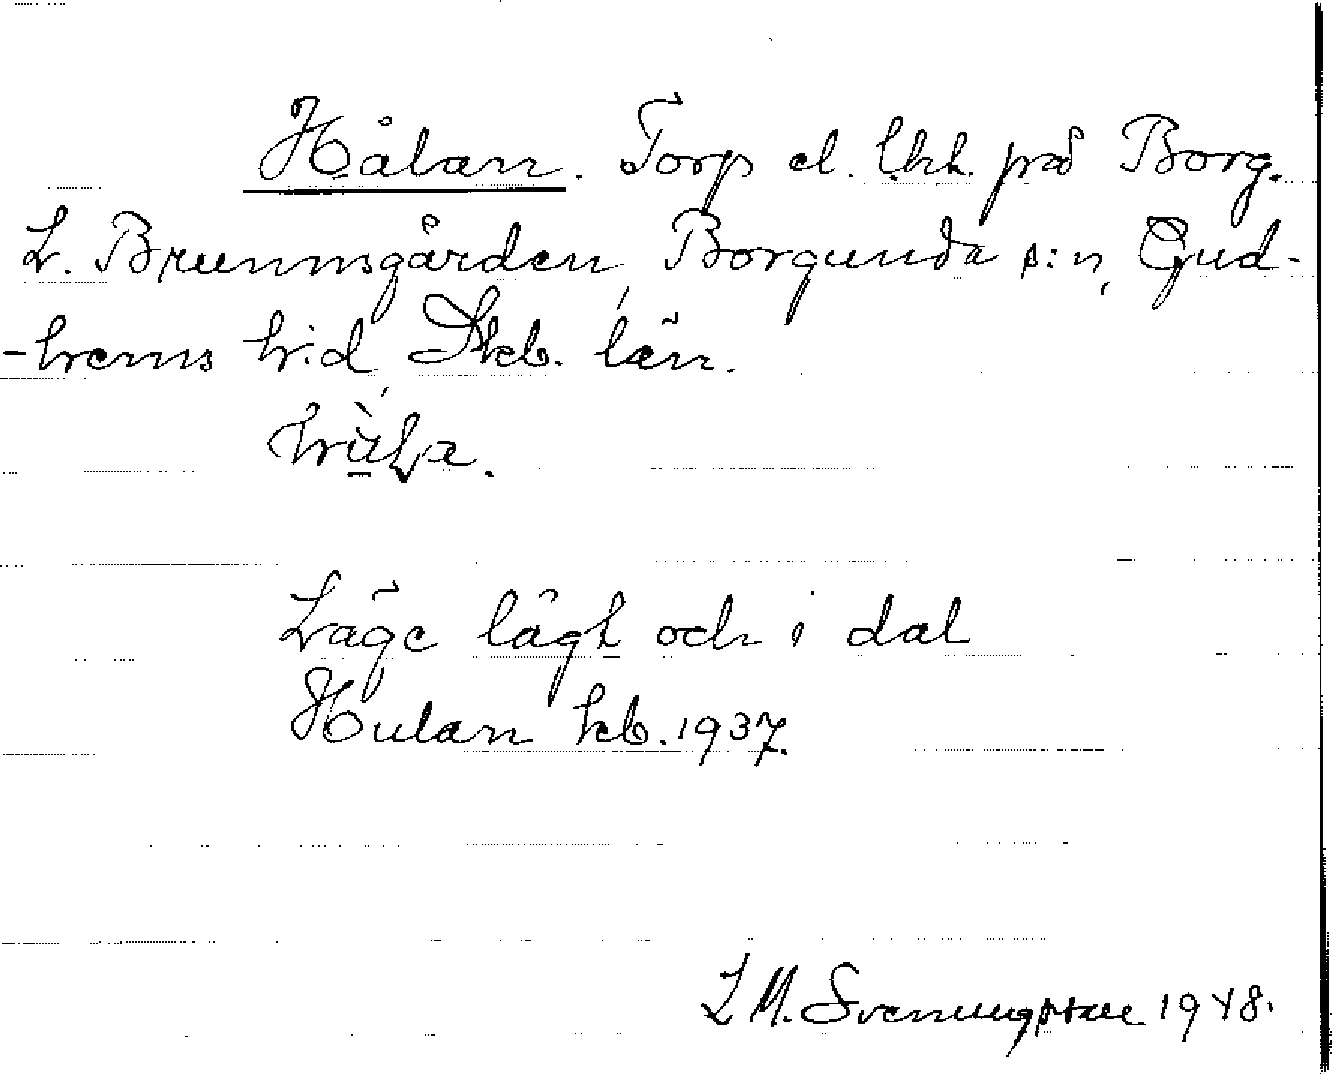 Hålan. Torp el. lht. på Borg.
L. Brunnsgården, Borgunda s:n, Gud-
-hems h:d, Skb. län.
Läge lågt och i dal
Hulan kb. 1937.
L M. Svenungsson 1948.